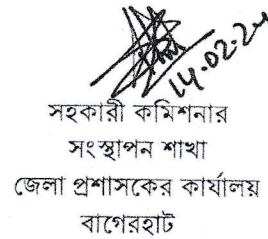 14.02.2
সহকারী কমিশনার
সংস্থাপন শাখা
জেলা প্রশাসকের কার্যালয়
বাগেরহাট